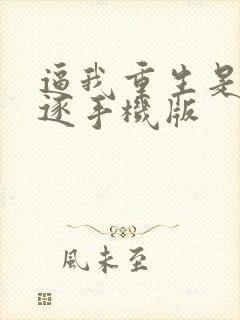 逼我重生是
逐手機版
風未至